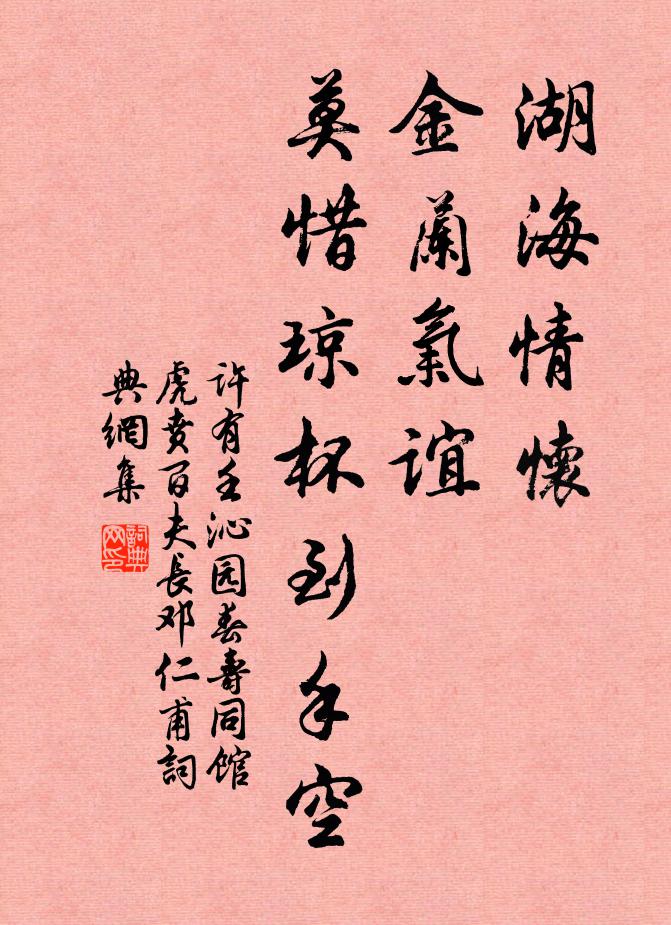 湖海情懷
金蘭氣誼
莫惜琼杯到手空
许有壬沁园春壽同馆
虎贲百夫長邓仁甫詞
典網集
詞典网印